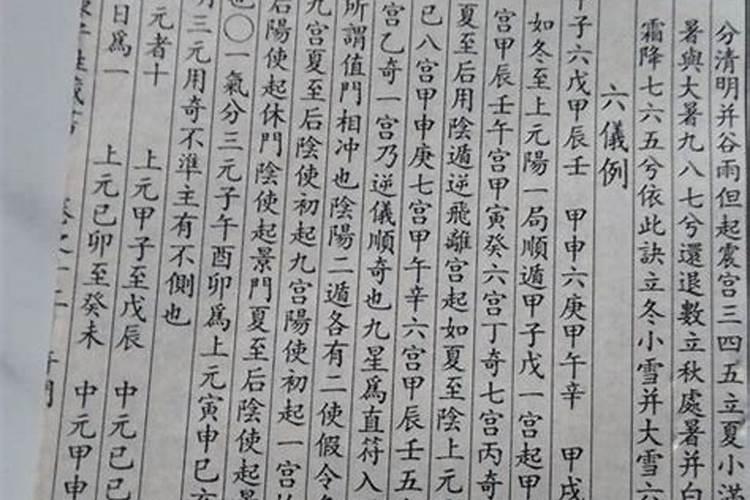 分清明并谷雨但起震宫三四五立夏小滿
暑與大暑九八七兮還退數立秋處暑并白
霜降七六五兮依此訣立冬小雪并大雪六
六儀例
子六戊甲辰壬 甲申六庚甲午辛 甲戌
如冬至上元陽一局順遁甲子戊一宫起甲
宫甲辰壬午宫甲寅癸六宫丁奇七宫丙奇
夏至后用陰遁逆飛離宫起如夏至陰上元
已八宫甲申庚七宫甲午辛六宫甲辰壬五
宫乙奇一宫乃逆儀順奇也九星爲直符入
所謂值門相冲也陰陽二遁各有二使假令
九宫夏至后陰使初起九宫陽使初起一宫
后陽使起休門陰使起景門夏至后陰使起景
也〇一氣分三元子午酉卯爲上元寅申巳亥
三元用奇不準主有不側也
元者十 上元甲子至戊辰 中元己巳
日爲一 上元己卯至癸未 中元甲申